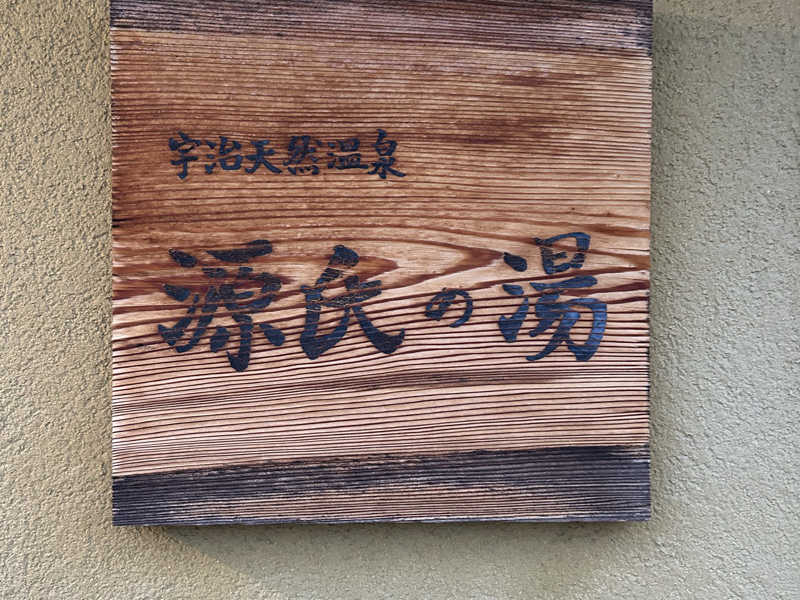 宇治天然温泉
源氏の湯